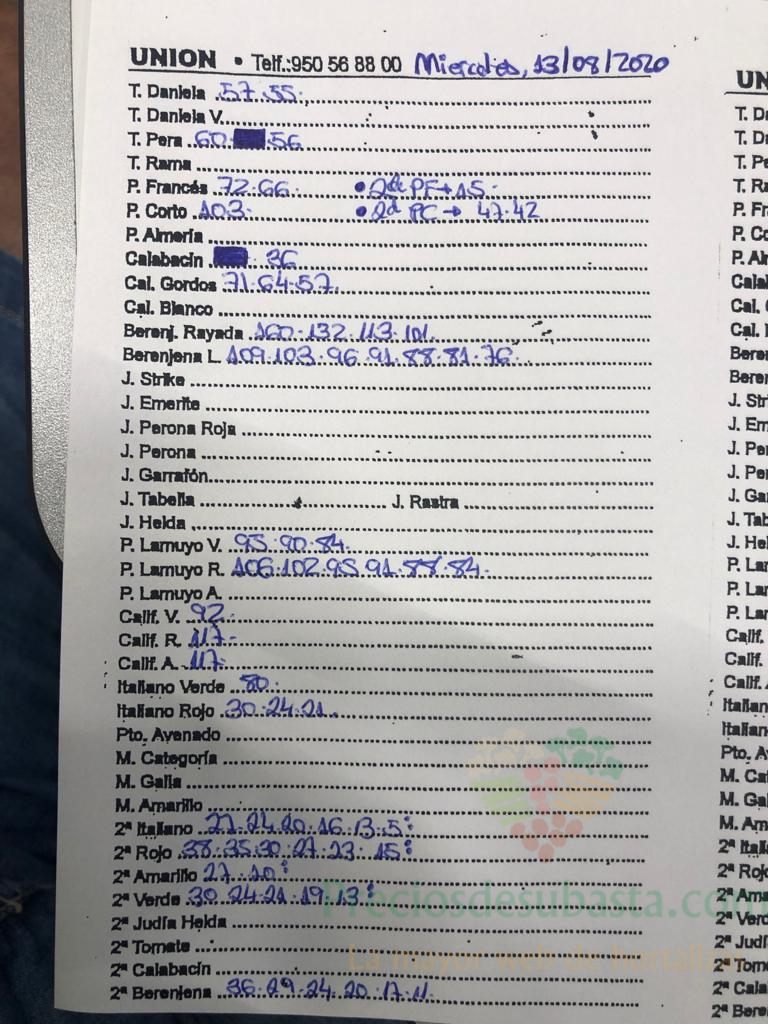 UNION • Telf.:950 56 88 00 Miercoles, 13/08/2020
T. Daniela 57.55.
T. Daniela V.
T. Pera 60 56
T. Rama
P. Francés 72.66. • 2ª PF→15.
P. Corto 103. • 2ª PC→ 47.42
P. Almería
Calabacín 36
Cal. Gordos 71.64.57.
Cal. Blanco
Berenj. Rayada 160.132.113.101.
Berenjena L. 109.103.96.91.88.81.76.
J. Strike
J. Emerite
J. Perona Roja
J. Perona
J. Garrafón
J. Tabella J. Rastra
J. Helda
P. Lamuyo V. 95.90.84.
P. Lamuyo R. 106.102.95.91.88.84.
P. Lamuyo A.
Calif. V. 92.
Calif. R. 117.
Calif. A. 117.
Italiano Verde 80.
Italiano Rojo 30.24.21.
Pto. Avenado
M. Categoría
M. Galia
M. Amarillo
2ª Italiano 27.24.20.16.13.5.
2ª Rojo 38.35.30.27.23.15.
2ª Amarillo 27.10.
2ª Verde 30.24.21.19.13.
Preciosdesubasta.com
2ª Judía Helda
2ª Tomate
La mayor web de hortaliz
2ª Calabacín
2ª Berenjena 36.29.24.20.17.11.
UN
T. Da
T. Da
T. Pe
T. Ra
P. Fr
P. Co
P. Al
Calal
Cal.
Cal.
Beren
Beren
J. Str
J. Em
J. Pe
J. Pe
J. Ga
J. Tab
J. Hel
P. Lar
P. Lar
P. Lar
Calif.
Calif.
Calif.
Italian
Italian
Pto. A
M. Ca
M. Ga
M. Am
2ª Itali
2ª Rojo
2ª Ama
2ª Verd
2ª Judí
2ª Tom
2ª Cala
2ª Bere